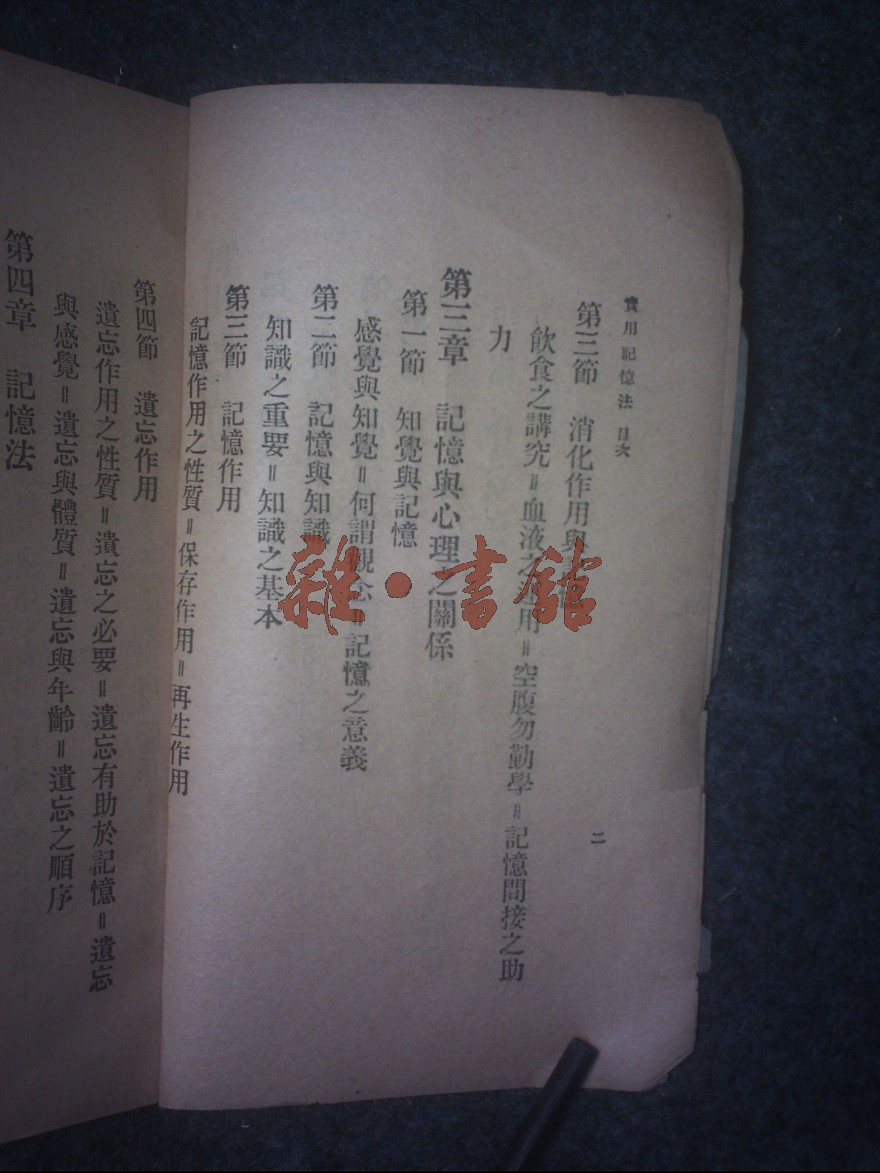 實用記憶法 目次
二
第三節 消化作用與記憶
飲食之講究＝血液之運用＝空腹勿勤學＝記憶間接之助
力
第三章 記憶與心理之關係
第一節 知覺與記憶
感覺與知覺＝何謂觀念＝記憶之意義
第二節 記憶與知識
知識之重要＝知識之基本
第三節 記憶作用
記憶作用之性質＝保存作用＝再生作用
第四節 遺忘作用
遺忘作用之性質＝遺忘之必要＝遺忘有助於記憶＝遺忘
與感覺＝遺忘與體質＝遺忘與年齡＝遺忘之順序
第四章 記憶法
雜·書館